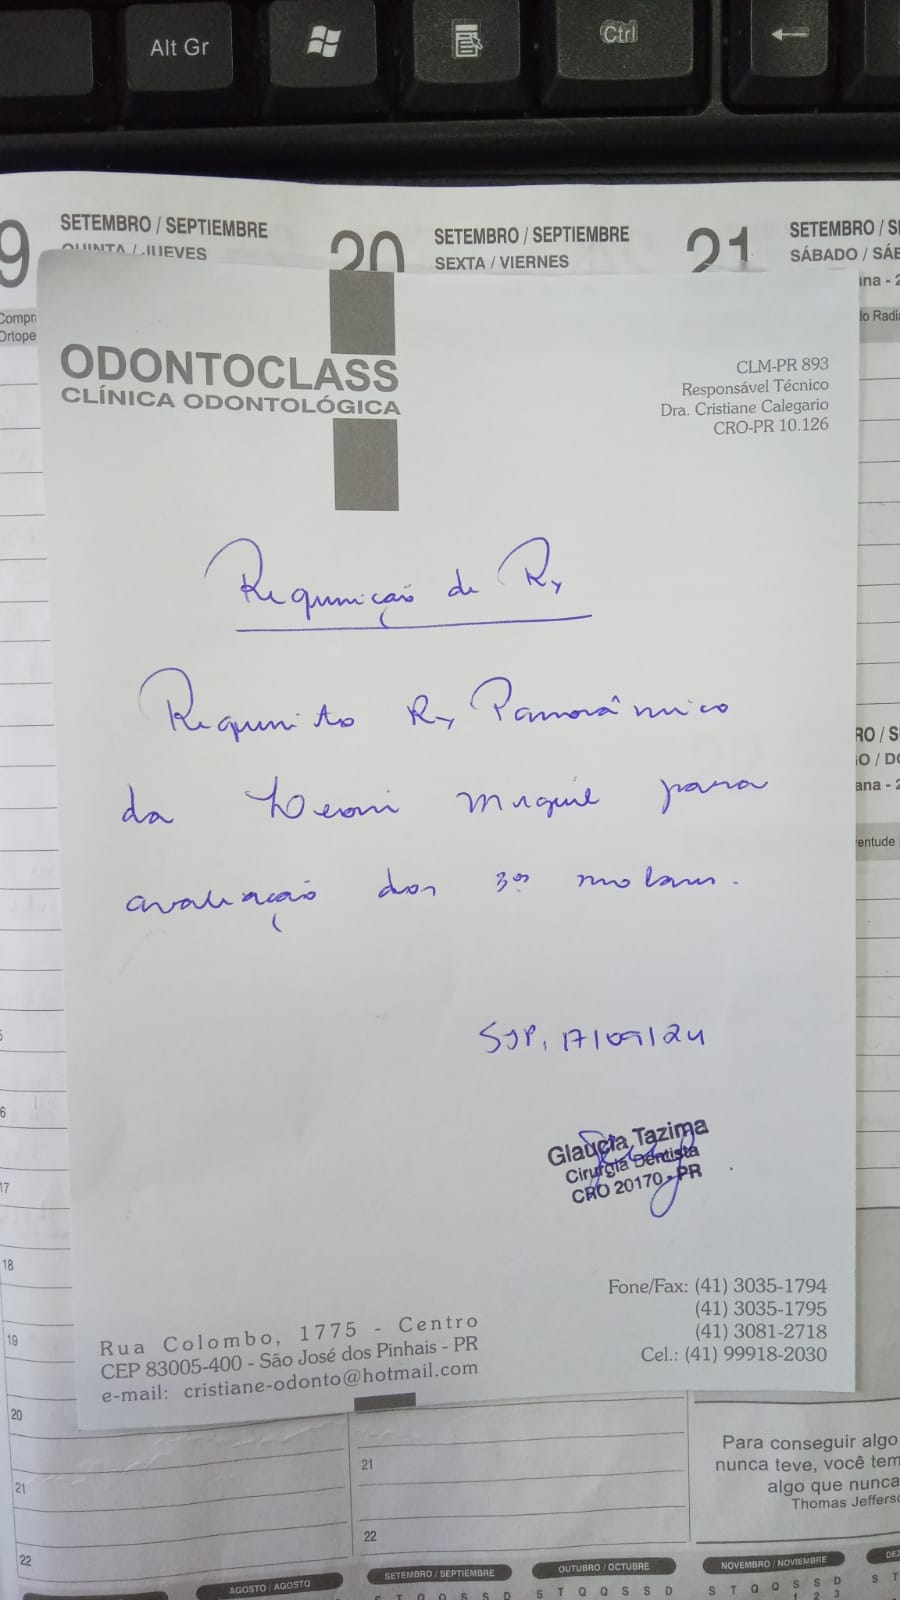 Alt Gr
Ctrl
9 SETEMBRO / SEPTIEMBRE
QUINTA / JUEVES
20 SETEMBRO / SEPTIEMBRE
SEXTA / VIERNES
21 SETEMBRO / SE
SÁBADO / SÁB
ana - 2
Compr
Ortope
do Radi
ODONTOCLASS
CLÍNICA ODONTOLÓGICA
CLM-PR 893
Responsável Técnico
Dra. Cristiane Calegario
CRO-PR 10.126
Requisição de Rx
Requisito Rx Panorâmico
da Miguel para
avaliação dos 3º molares.
SJP, 17/09/24
Glaucia Tazima
Cirurgiã Dentista
CRO 20170 - PR
RO / S
O / DO
ana - 2
entude
Fone/Fax: (41) 3035-1794
(41) 3035-1795
(41) 3081-2718
Cel.: (41) 99918-2030
Rua Colombo, 1775 - Centro
CEP 83005-400 - São José dos Pinhais - PR
e-mail: cristiane-odonto@hotmail.com
6
17
18
19
20
21
22
21
22
Para conseguir algo
nunca teve, você tem
algo que nunca
Thomas Jefferso
AGOSTO / AGOSTO
SETEMBRO / SEPTIEMBRE
S T Q Q S S D
OUTUBRO / OCTUBRE
S T Q Q S S D
NOVEMBRO / NOVIEMBRE
S T Q Q S S D
1 2 3
DEZ
S T